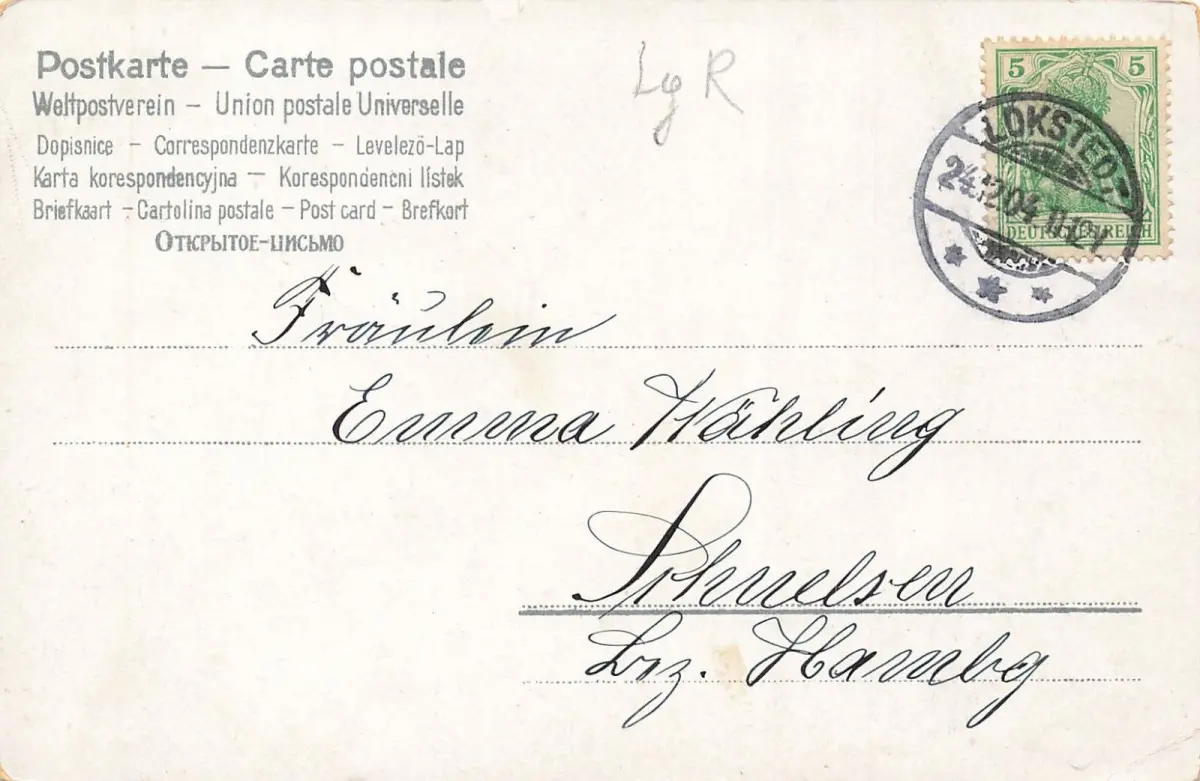 Postkarte — Carte postale
Weltpostverein – Union postale Universelle
Dopisnice – Correspondenzkarte – Levelező-Lap
Karta korespondencyjna – Korespondencni lístek
Briefkaart – Cartolina postale – Post card – Brefkort
Открытое-письмо
Lg R
5 5
DEUTSCHES REICH
LOKSTEDT
24.12.04
Fräulein
Emma Wähling
Schnelsen
Bez. Hambg